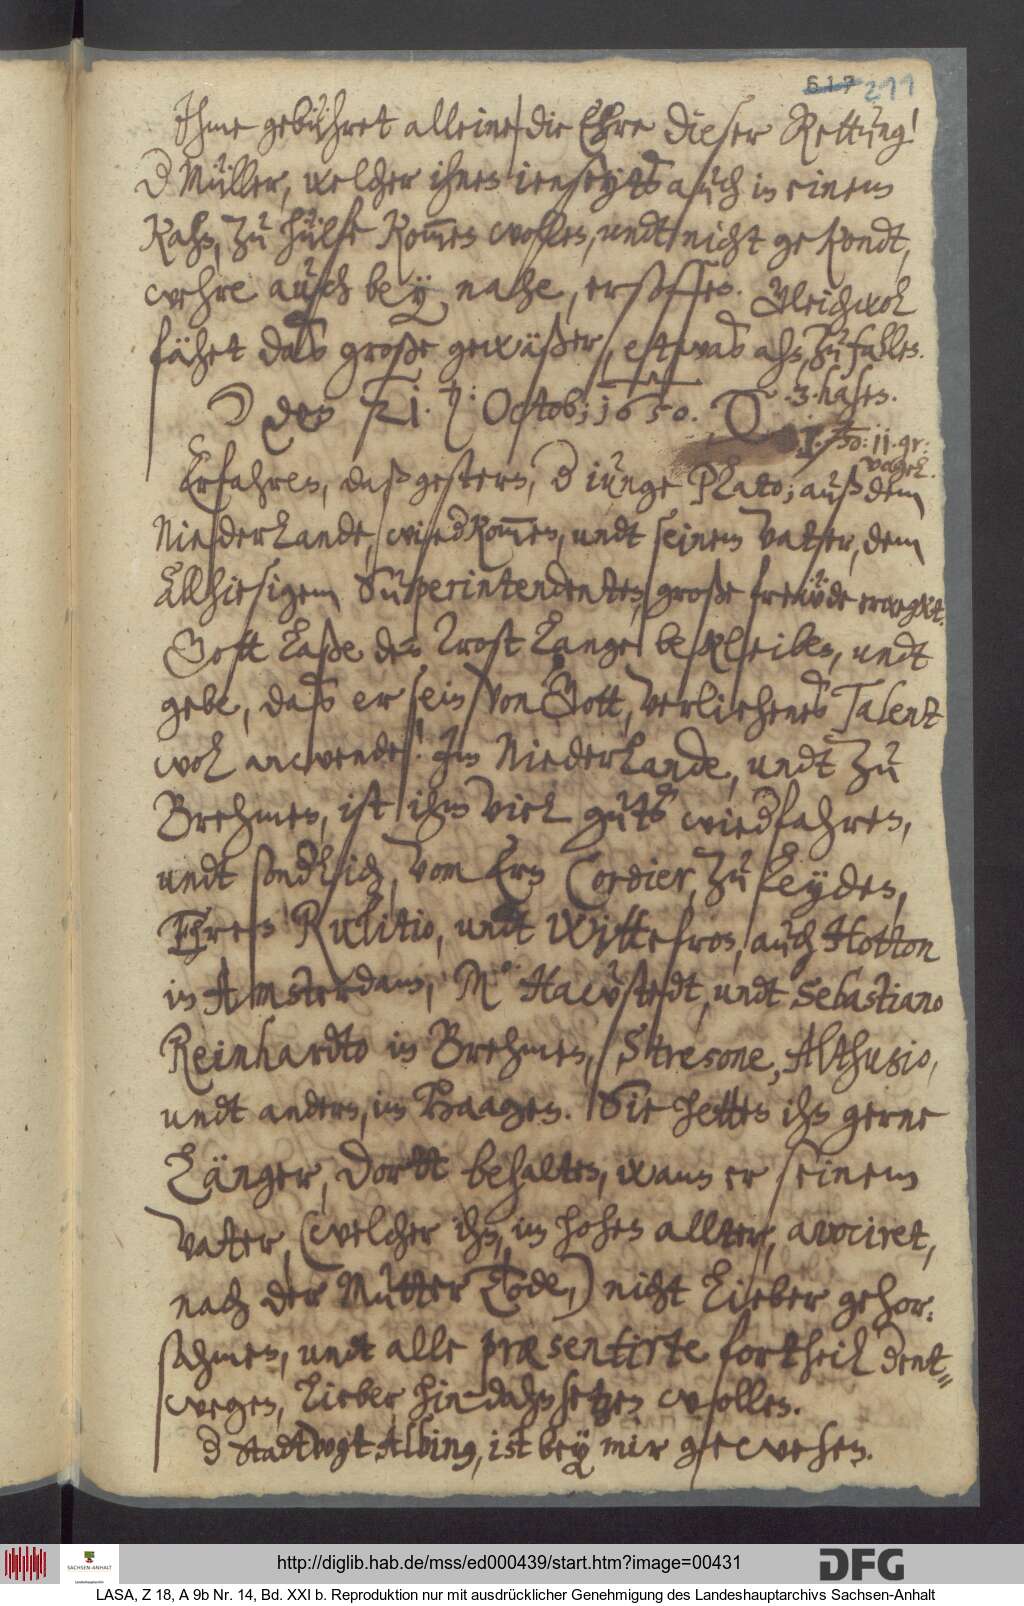 517 211
Ihme gebühret alleine, die Ehre dieser Rettung!
d Müller, welcher ihnen ienseyts auch in einem
Kahn, zu hülfe kommen wollen, undt nicht gekondt,
wehre auch bey nahe, ersoffen. Gleichwol
fähet das große gewäßer, etwas ahn, zu fallen.
den 21. Octob: 1650. 3. hasen.
11. gr:
vogel.
Erfahren, daß gestern, d iunge Plato; auß dem
Niederlande, wiedkommen, undt seinem Vatter, dem
Allhiesigem Superintendenten, große freüde erregt.
Gott laße den Trost lange bekleiben, undt
gebe, daß er sein von Gott, verliehenes Talent
wol anwende! Jm Niederlande, undt zu
Brehmen, ist ihm viel guts wiedfahren,
undt sondlich, vom Ern Cordier, zu Leyden,
Ehren Rulitio, undt Wittefros, auch Hotton
in Amsterdam, Mo. Havystedt, undt Sebastiano
Reinhardto in Brehmen, Stresone, Althusio,
undt andern, im Haagen. Sie hetten ihn gerne
Länger, dortt behalten, wann er seinem
Vatter, (welcher ihn, im hohen allter, avociret,
nach der Mutter Tode,) nicht lieber gehor:
sahmen, undt alle præsentirte fortheil dent=
wegen, lieber hindahn setzen wollen.
d Stadtvogt Albing, ist bey mir gewehsen.
http://diglib.hab.de/mss/ed000439/start.htm?image=00431
SACHSEN-ANHALT
DFG
LASA, Z 18, A 9b Nr. 14, Bd. XXI b. Reproduktion nur mit ausdrücklicher Genehmigung des Landeshauptarchivs Sachsen-Anhalt